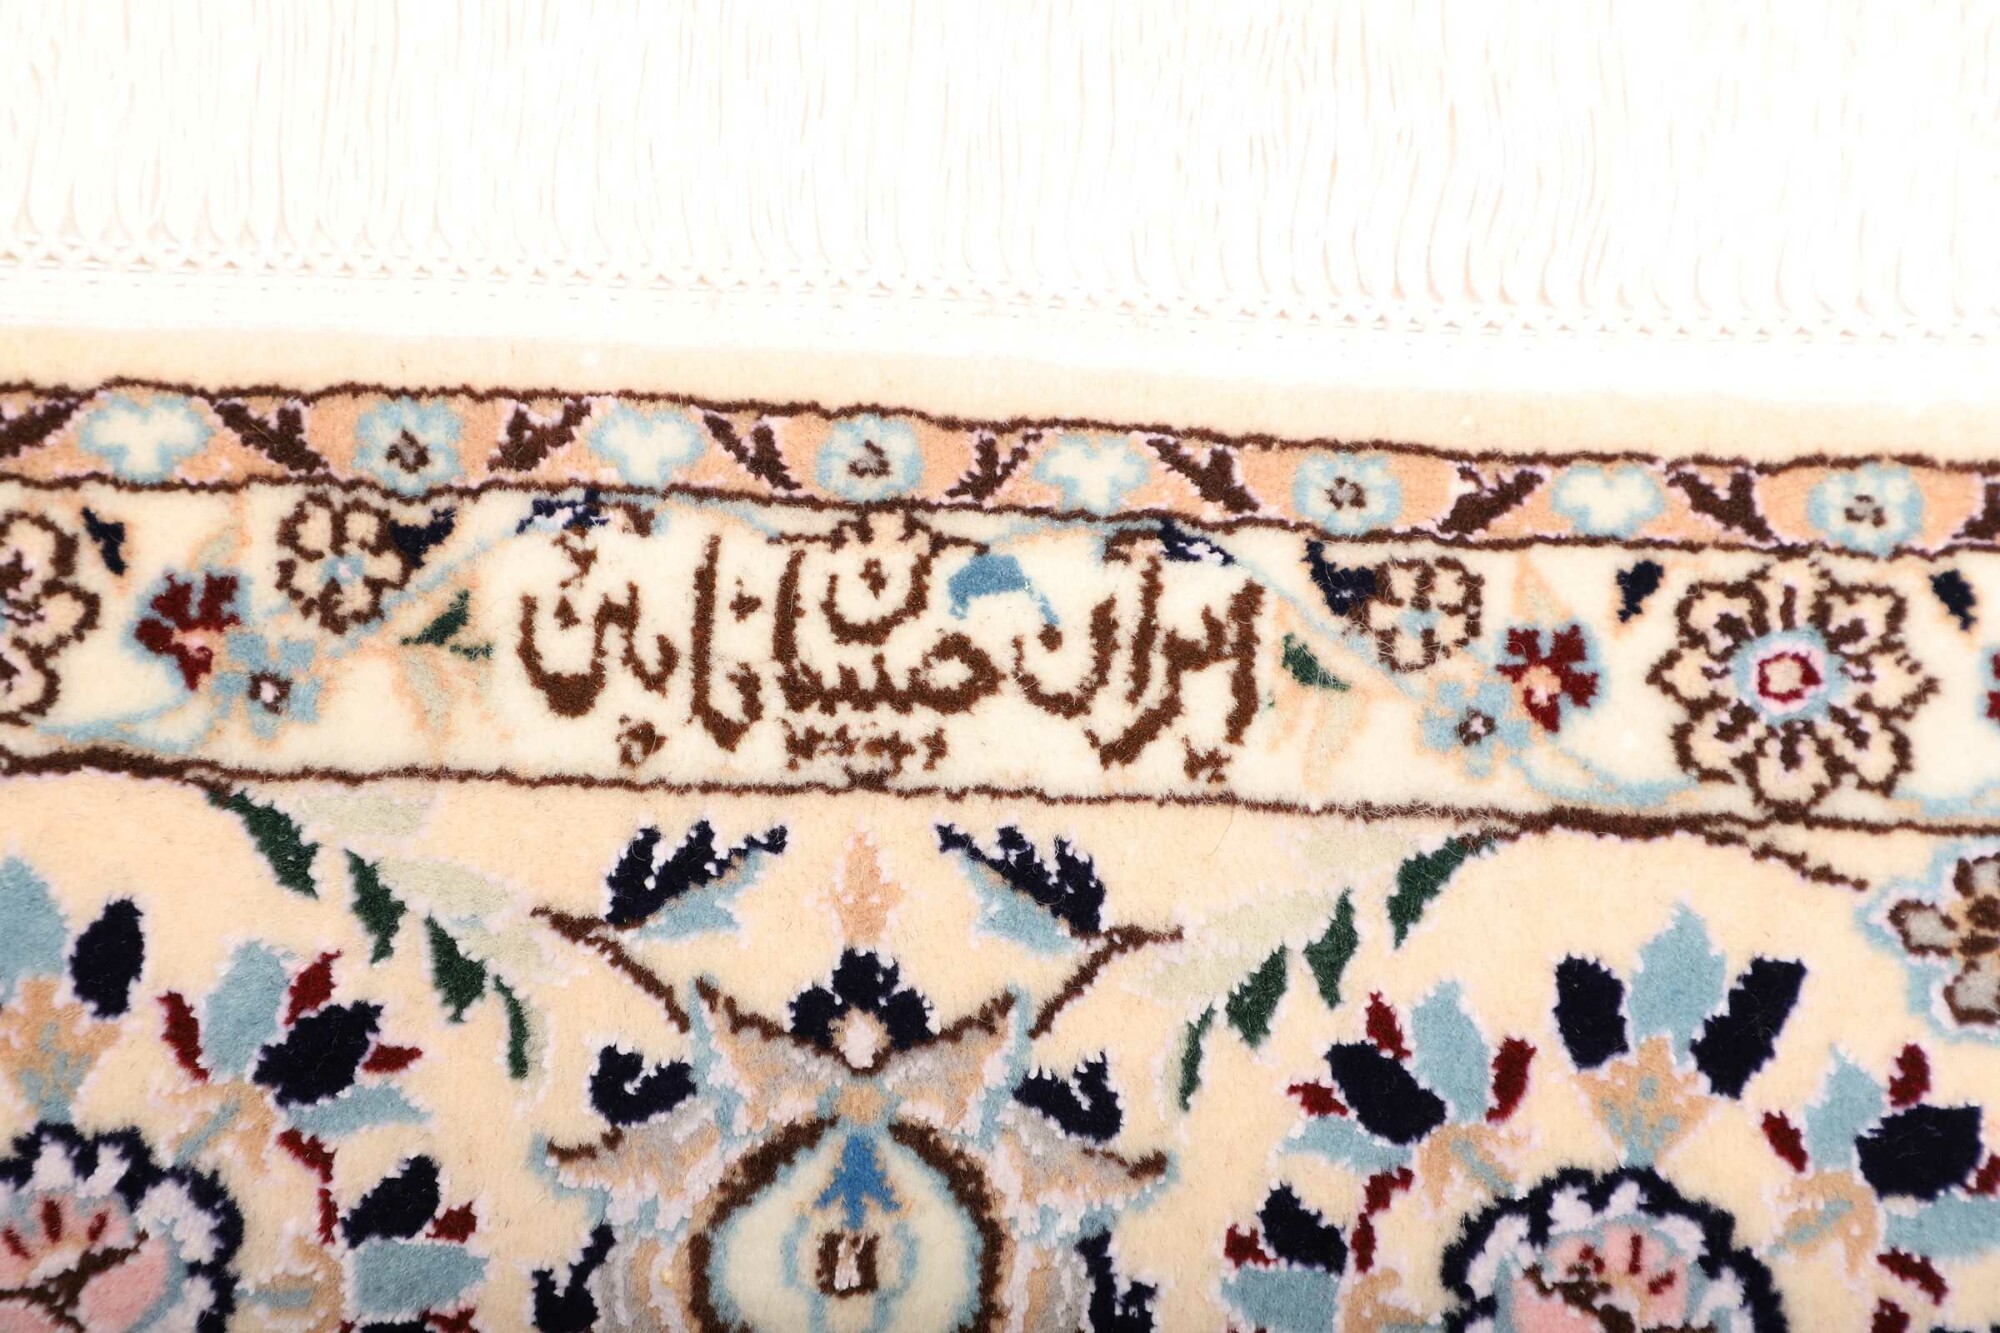 ایران حبیبیان نایین